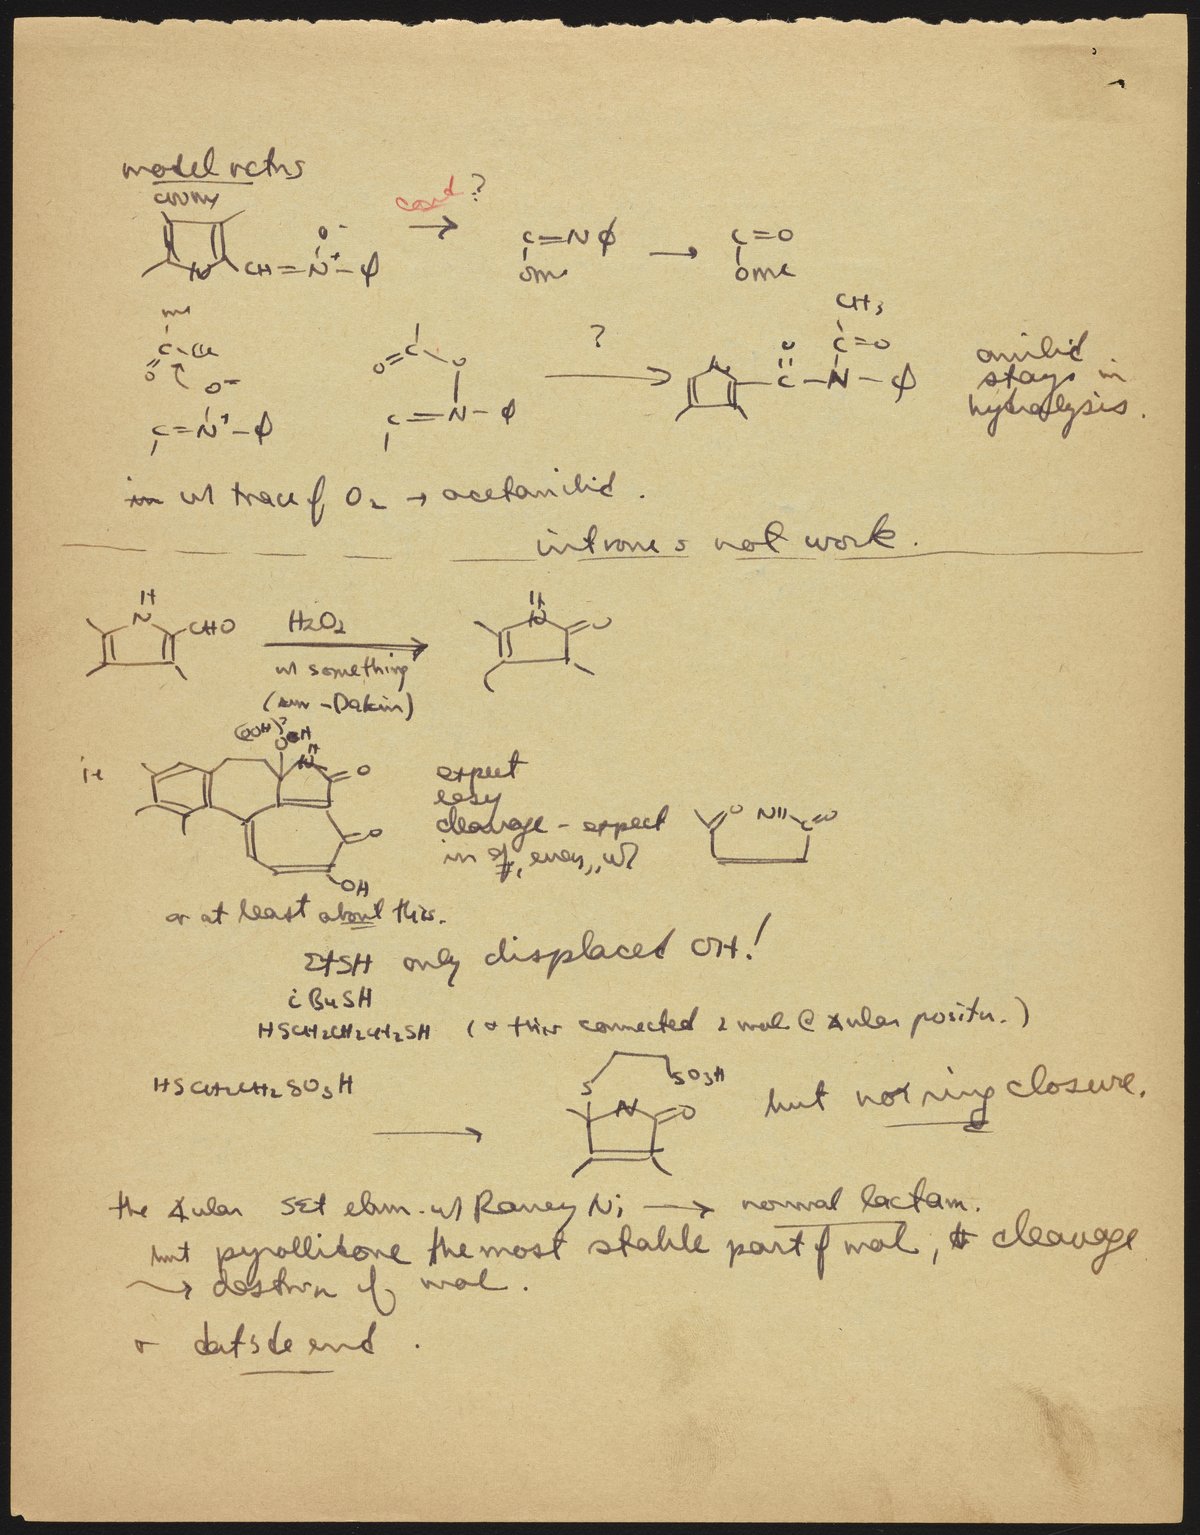 model rctns
cont ?
CH=N+-φ
O-
C=Nφ
OMe
C=O
OMe
Me
C-Cl
O
O-
C=N+-φ
O=C-O
C=N-φ
?
CH3
C=O
N
O
C-N-φ
anilid
stays in
hydrolysis.
in w/ trace of O2 → acetanilid.
nitrone s not work.
H
N
CHO
H2O2
w/ something
(-Dakin)
H
N
O
ie
(OOH)?
OH
H
N
O
O
OH
expect
easy
cleavage - expect
in even w/
O
NH
C=O
or at least about this.
EtSH only displaced OH!
i BuSH
HSCH2CH2CH2SH (& this connected 2 mol @ ∡ular positn.)
HSCH2CH2SO3H
S
SO3H
N
O
but not ring closure.
the ∡ular SEt elim. w/ Raney Ni → normal lactam.
but the most stable part of mol, cleavage
→ destrn of mol.
end.